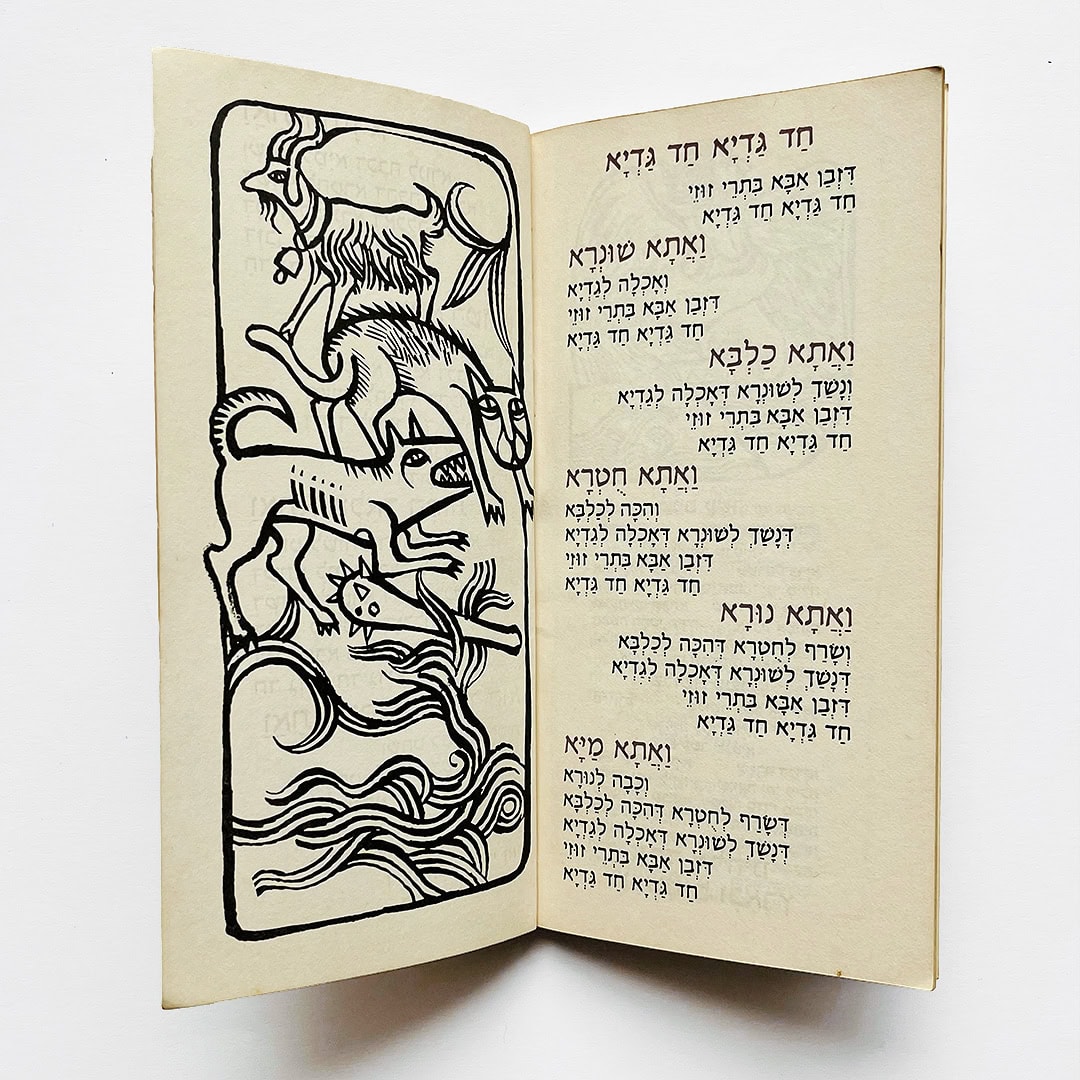 חַד גַּדְיָא חַד גַּדְיָא
דִּזְבַן אַבָּא בִּתְרֵי זוּזֵי
חַד גַּדְיָא חַד גַּדְיָא
וַאֲתָא שׁוּנְרָא
וְאָכְלָה לְגַדְיָא
דִּזְבַן אַבָּא בִּתְרֵי זוּזֵי
חַד גַּדְיָא חַד גַּדְיָא
וַאֲתָא כַלְבָּא
וְנָשַׁךְ לְשׁוּנְרָא דְּאָכְלָה לְגַדְיָא
דִּזְבַן אַבָּא בִּתְרֵי זוּזֵי
חַד גַּדְיָא חַד גַּדְיָא
וַאֲתָא חֻטְרָא
וְהִכָּה לְכַלְבָּא
דְּנָשַׁךְ לְשׁוּנְרָא דְּאָכְלָה לְגַדְיָא
דִּזְבַן אַבָּא בִּתְרֵי זוּזֵי
חַד גַּדְיָא חַד גַּדְיָא
וַאֲתָא נוּרָא
וְשָׂרַף לְחֻטְרָא דְּהִכָּה לְכַלְבָּא
דְּנָשַׁךְ לְשׁוּנְרָא דְּאָכְלָה לְגַדְיָא
דִּזְבַן אַבָּא בִּתְרֵי זוּזֵי
חַד גַּדְיָא חַד גַּדְיָא
וַאֲתָא מַיָּא
וְכָבָה לְנוּרָא
דְּשָׂרַף לְחֻטְרָא דְּהִכָּה לְכַלְבָּא
דְּנָשַׁךְ לְשׁוּנְרָא דְּאָכְלָה לְגַדְיָא
דִּזְבַן אַבָּא בִּתְרֵי זוּזֵי
חַד גַּדְיָא חַד גַּדְיָא